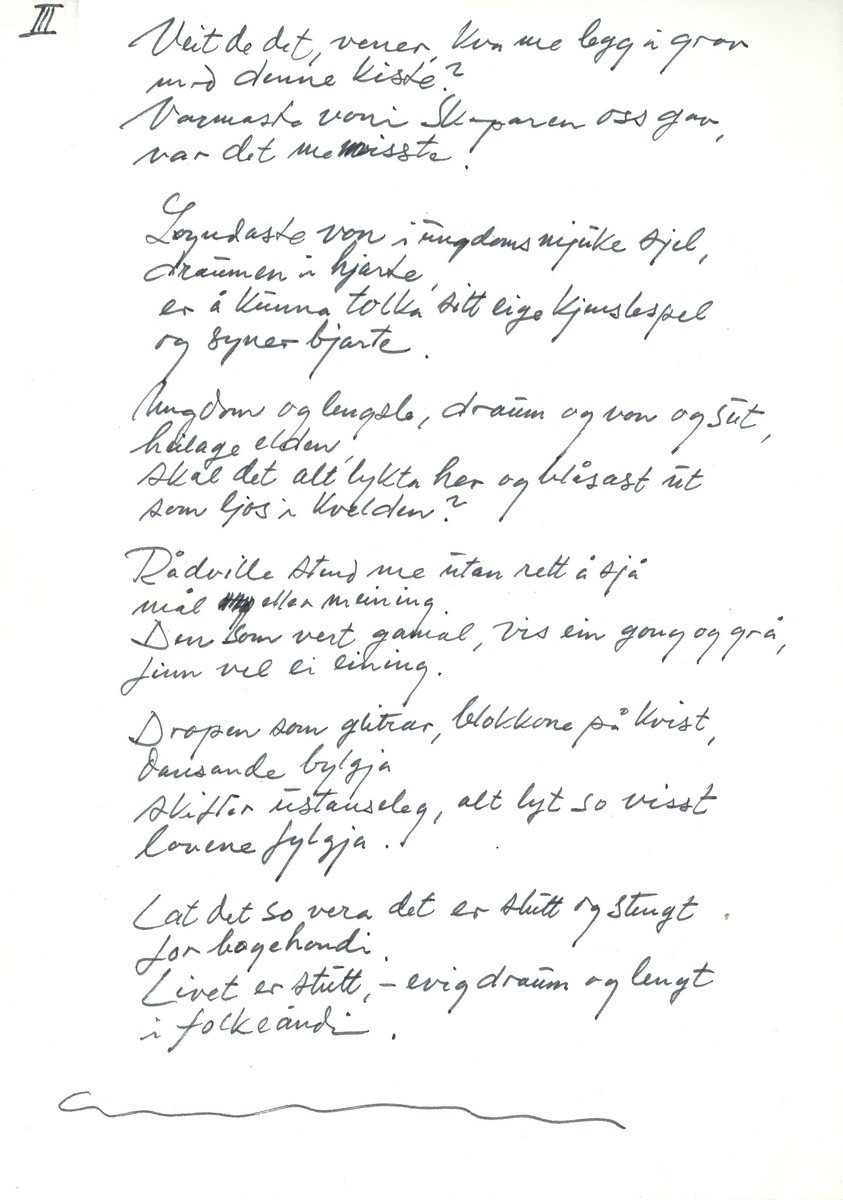 III
Veit de det, vener, kva me legg i grav
med denne kiste?
Varmaste voni Skaparen oss gav,
var det me misste.
Løyndaste von i ungdoms mjuke sjel,
draumen i hjarte,
er å kunna tolka sitt eige kjenslespel
og syner bjarte.
Ungdom og lengsle, draum og von og sut,
heilage elden,
skal det alt lykta her og blåsast ut
som ljos i kvelden?
Rådville stend me utan rett å sjå
mål eller meining.
Den som vert gamal, vis ein gong og grå,
finn vel ei eining.
Dropen som glitrar, blokkone på kvist,
dansande bylgja
skifter ustanseleg, alt lyt so visst
lovene fylgja.
Lat det so vera det er stutt og stengt
for hagehondi.
Livet er stutt, – evig draum og lengt
i folkeåndi.